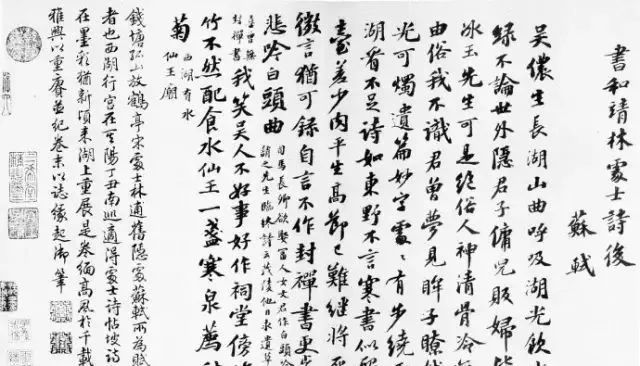 書和靖林處士詩後
蘇軾
吳儂生長湖山曲呼吸湖光飲山
綠不論世外隱君子傭兒販婦皆
冰玉先生可是絕俗人神清骨冷
由俗我不識君曾夢見眸子瞭
光可燭遺篇妙字處處有步繞
湖看不足詩如東野不言寒書似
臺差少肉平生高節已難繼將
微言猶可錄自言不作封禪書更
悲吟白頭曲
司馬長卿欲娶富人女文君作白頭吟
誚之先生臨終詩云茂陵他日求遺草
喜曾無
封禪書
我笑吳人不好事好作祠堂傍
竹不然配食水仙王一盞寒泉薦
菊
西湖有水
仙王廟
錢塘孤山放鶴亭宋處士林逋舊隱處蘇軾所為賦
者也西湖行宮在其陽丁丑南巡適得處士詩帖坡詩
在墨彩猶新頃來湖上重展是卷緬高風於千載
雅興以重賡並紀卷末以誌緣起御筆